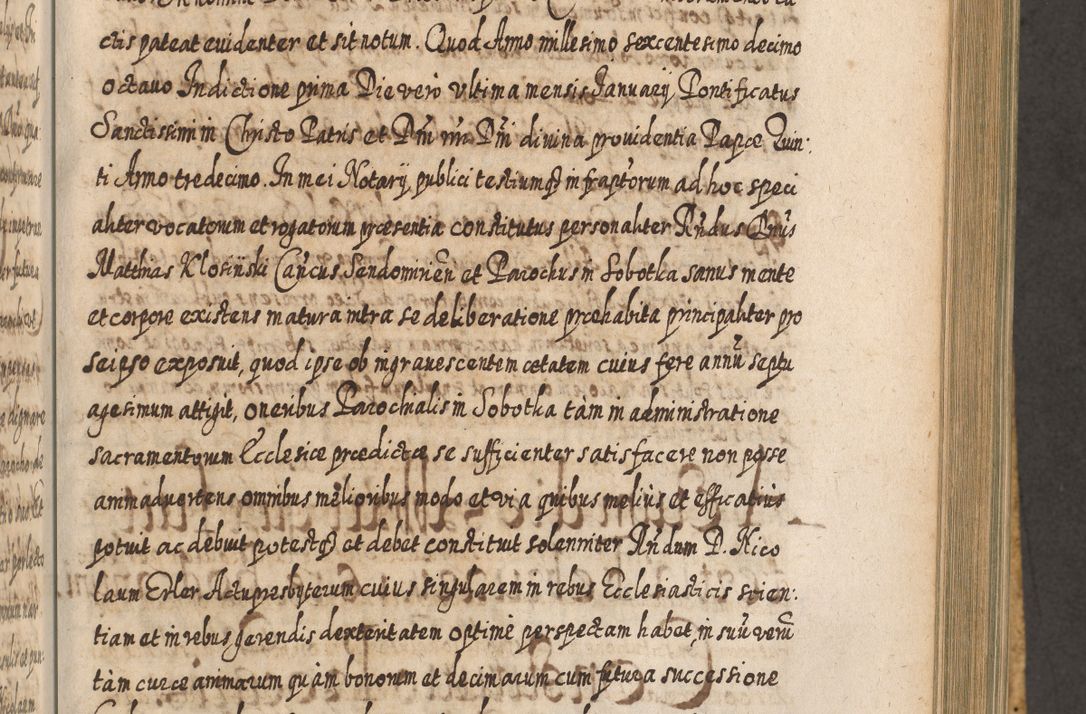 ctis pateat evidenter et sit notum. Quod Anno millesimo sexcentesimo decimo
octavo Indictione prima Die vero ultima mensis Januarij Pontificatus
Sanctissimi in Christo Patris et Dni nri Dni divina providentia Papæ Quin:
ti Anno tredecimo. In mei Notarij publici testiumq infraptorum ad hoc speci
aliter vocatorum et rogatorum præsentia constitutus personaliter Rndus Dnus
Matthias Klosinski Cancus Sendomirien et Parochus in Sobotka sanus mente
et corpore existens matura intra se deliberatione præhabita principaliter pro
se ipso exposuit, quod ipse ob ingravescentem ætatem cuius fere annū septu
agesimum attigit, oneribus Parochialis in Sobotka tàm in administratione
sacramentorum Ecclesiæ prædictæ se sufficienter satisfacere non posse
animadvertens omnibus melioribus modo et via quibus meliùs et efficatiùs
potuit ac debuit potestq et debet constituit solenniter Rndum D. Nico
laum Erler Actupresbyterum cuius singularem in rebus Ecclesiasticis scien:
tiam et in rebus gerendis dexteritatem optimè perspectam habet, in suū verū
tàm curæ animarum quàm bonorum et decimarum cum futura successione